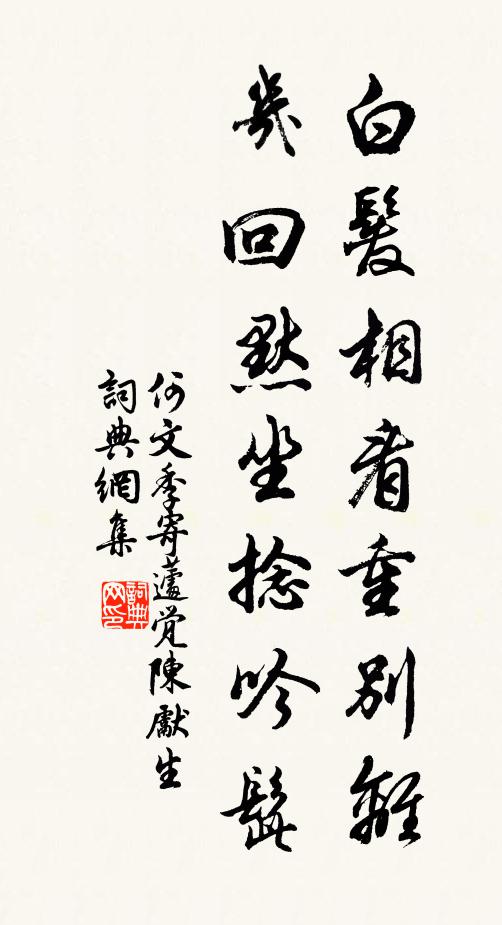 白髮相看重別離
幾回默坐捻吟髭
何文季寄蘧覺陳獻生
詞典網集
詞典网印